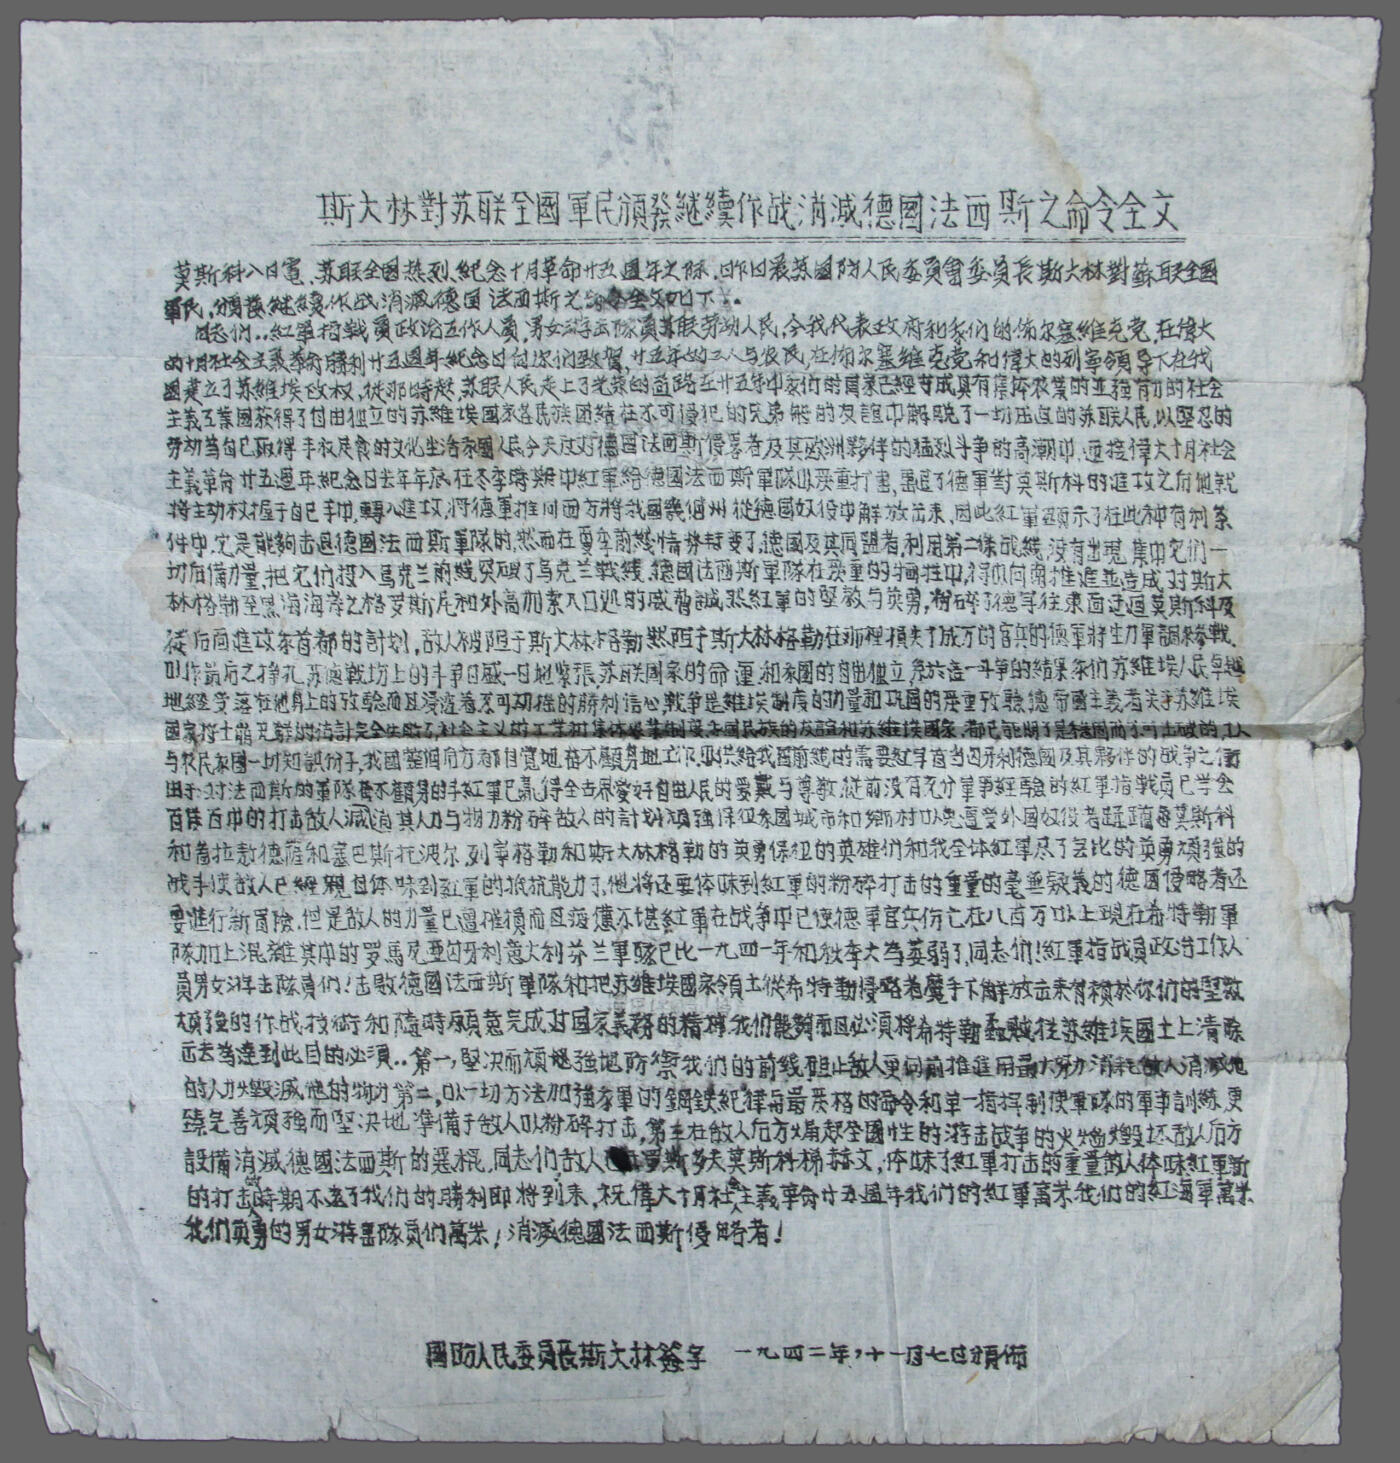 斯大林對苏联全國軍民頒發継續作战消滅德國法西斯之命令全文
莫斯科八日電、苏联全國热烈紀念十月革命廿五週年之际,昨日最苏國防人民委員會委員長斯大林對蘇联全國
軍民,頒發継續作战消滅德国法西斯之命令全文如下:
同志们..紅軍指戰員政治工作人員,男女游击隊員苏联劳动人民,今我代表政府和我们的佈尔塞維克党,在偉大
的十月社会主義革命勝利廿五週年紀念日向你们致賀,廿五年的工人与农民,在佈尔塞維克党和偉大的列寧領导下在我
國建立了苏維埃政权,從那時起,苏联人民走上了光荣的道路在廿五年中我们的國家已經变成具有集体农業的並强有力的社会
主義工業國获得了自由独立的苏維埃國家各民族团結在不可侵犯的兄弟般的友誼中解脱了一切压迫的苏联人民,以堅忍的
劳动为自己取得丰衣足食的文化生活我國人民今天反对德国法西斯侵畧者及其欧洲夥伴的猛烈斗争的高潮中,迎接偉大十月社会
主義革命廿五週年紀念日去年年底在冬季時期中紅軍給德國法西斯軍隊以严重打击,击退了德軍對莫斯科的進攻之后他就
将主动权握于自己手中,轉入進攻,将德軍推向西方將我國幾個州從德國奴役中解放出来,因此紅軍顕示了在此种有利条
件中,它是能夠击退德國法西斯軍隊的,然而在夏季前綫情势轉变了,德國及其同盟者,利用第二條战綫,没有出現,集中它们一
切后備力量,把它们投入烏克兰前綫突破了烏克兰戰綫,德國法西斯軍隊在严重的犧牲中,得以向南推進並造成对斯大
林格勒至黑海海岸之格罗斯尼和外高加索入口处的威脅誠然紅軍的堅毅与英勇,粉碎了德军往東面迂迴莫斯科及
從后面進攻我首都的計划,敌人被阻于斯大林格勒然阻于斯大林格勒在那裡損失了成万的官兵的德軍將生力軍調来参戰、
以作最后之挣扎,苏德戰场上的斗争日盛一日地緊張,苏联國家的命運和我國的自由独立,系於這一斗争的結果我们苏維埃人民卓越
地經受落在他身上的攷驗而且浸透着不可动摇的勝利信心戰争是維埃制度的力量和巩固的严重攷驗德帝國主義者关于苏維埃
國家将土崩瓦解的估計完全失敗了社会主义的工業和集体農業制度各國民族的友誼和苏維埃國家,都已証明了是穩固而不可击破的,工人
与农民我國一切知識份子,我國整個后方都自覚地,奋不顧身地工作,以供給我國前綫的需要紅軍首当匈牙利德國及其夥伴的战争之衝
由于对法西斯的軍隊奋不顧身的斗紅軍已贏得全世界爱好自由人民的爱戴与尊敬,從前没有充分軍事經驗的紅軍指戰員已学会
百發百中的打击敌人滅過其人力与物力粉碎敌人的計划頑强保衛我國城市和鄉村以免遭受外國奴役者蹂躏每莫斯科
和者拉敖德薩和塞巴斯托波尔,列寧格勒和斯大林格勒的英勇保衛的英雄们和我全体紅軍尽了无比的英勇頑强的
战斗使敌人已經親自体味到紅軍的抵抗能力了,他将还要体味到紅軍的粉碎打击的重量的毫無疑義的德国侵略者还
要進行新冒險,但是敌人的力量已遭摧損而且疲憊不堪紅軍在战争中已使德軍官兵伤亡在八百万以上現在希特勒軍
隊加上混雜其中的罗馬尼亞匈牙利意大利芬兰軍隊已比一九四一年和秋季大為英弱了,同志们!紅軍指战員政治工作人
員男女游击隊員们!击敗德國法西斯軍隊和把苏維埃國家領土從希特勒侵略者魔手下解放出来有賴於你们的堅毅
頑強的作战技術和隨時願意完成对国家義務的精神我们能夠而且必須将希特勒盗賊從苏維埃國土上清除
出去為達到此目的必須..第一,堅決而頑地强地防禦我们的前綫阻止敌人更向前推進用最大努力消耗敌人消滅他
的人力毁滅他的物力第二,以一切方法加强我軍的鋼鉄紀律与最严格的命令和單一指揮制使軍隊的軍事訓練更
臻完善頑强而堅决地準備于敌人以粉碎打击,第三在敌人后方燃起全國性的游击战争的火焰毁坏敌人后方
設備消滅德國法西斯的惡棍,同志们敌人已在罗斯多夫莫斯科梯赫文,体味了紅軍打击的重量敌人体味紅軍新
的打击的時期不遠了我们的勝利即将到来,祝偉大十月社会主義革命廿五週年我们的紅軍萬岁我们的紅海軍萬岁
我们英勇的男女游击隊員们萬岁!消滅德國法西斯侵略者!
國防人民委員長斯大林簽字 一九四二年,十一月七日頒佈